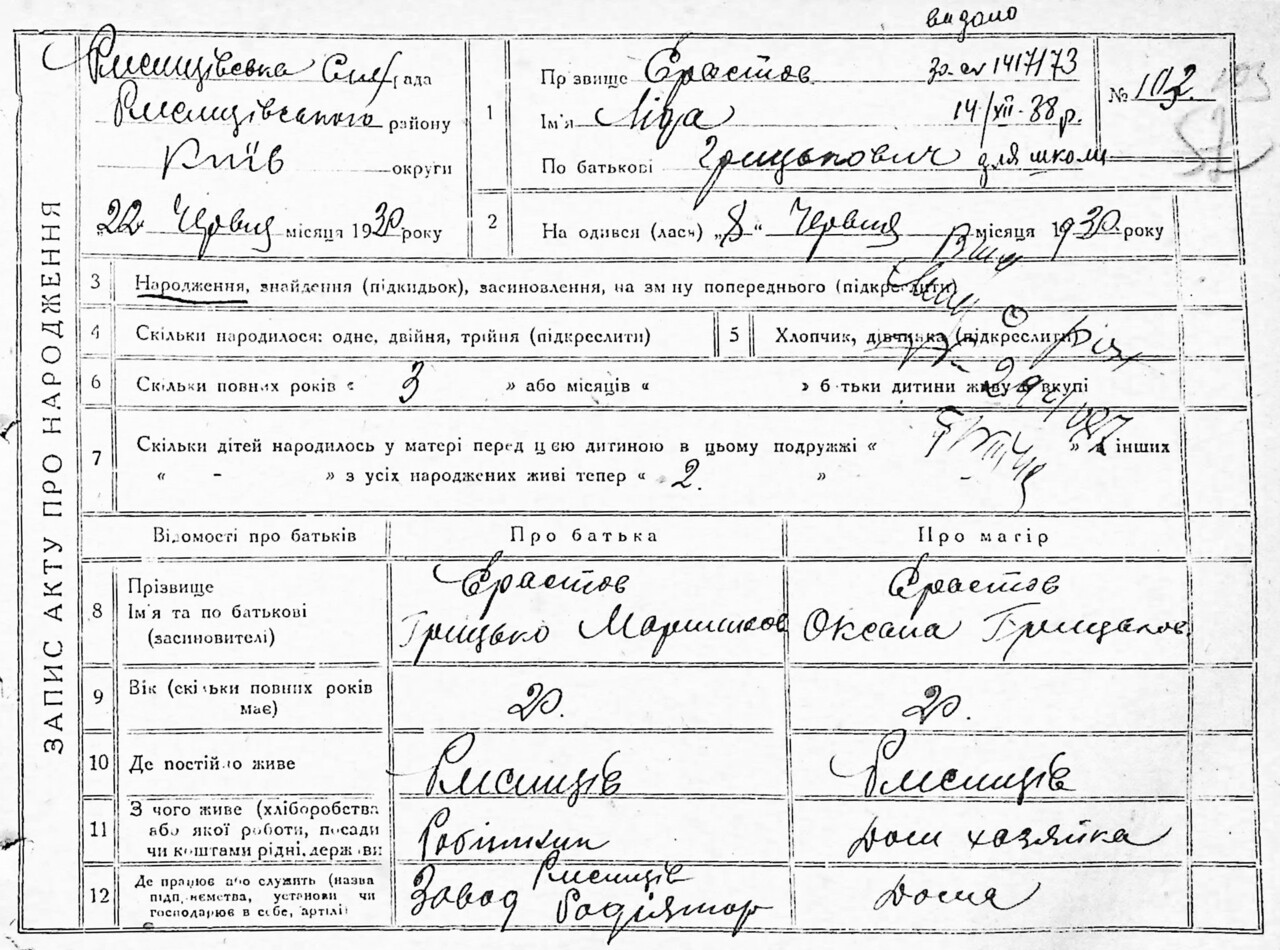 видано
Ржищівська Сіл рада
Ржищівського району
Київ округи
„22“ Червня місяця 1930 року
1
Прізвище Єрастов
Ім'я Ліда
По батькові Грицькович для школи
14/XII-38 р.
№ 102
103
2
На одився (лась) „8“ Червня місяця 1930. року
3
Народження, знайдення (підкидьок), засиновлення, на зм ну попереднього (підкреслити)
4
Скільки народилося: одне, двійня, трійня (підкреслити)
5
Хлопчик, дівчинка (підкреслити)
6
Скільки повних років « 3 » або місяців « » б тьки дитини живу вкупі
7
Скільки дітей народилось у матері перед цією дитиною в цьому подружжі « » інших
« - » з усіх народжених живі тепер « 2. »
ЗАПИС АКТУ ПРО НАРОДЖЕННЯ
Відомості про батьків
Про батька
Про матір
8
Прізвище
Ім'я та по батькові
(засиновителі)
Єрастов
Грицько
Єрастов
Оксана Грицьков
9
Вік (скільки повних років
має)
20.
20.
10
Де постійно живе
Ржищів
Ржищів
11
З чого живе (хліборобства
або якої роботи, посади
чи коштами рідні, держави
Робітник
Дом хозяйка
12
Де працює або служить (назва
підп иємства, установи чи
господарює в себе, артілі
Завод Ржищів
Радіятор
Дома